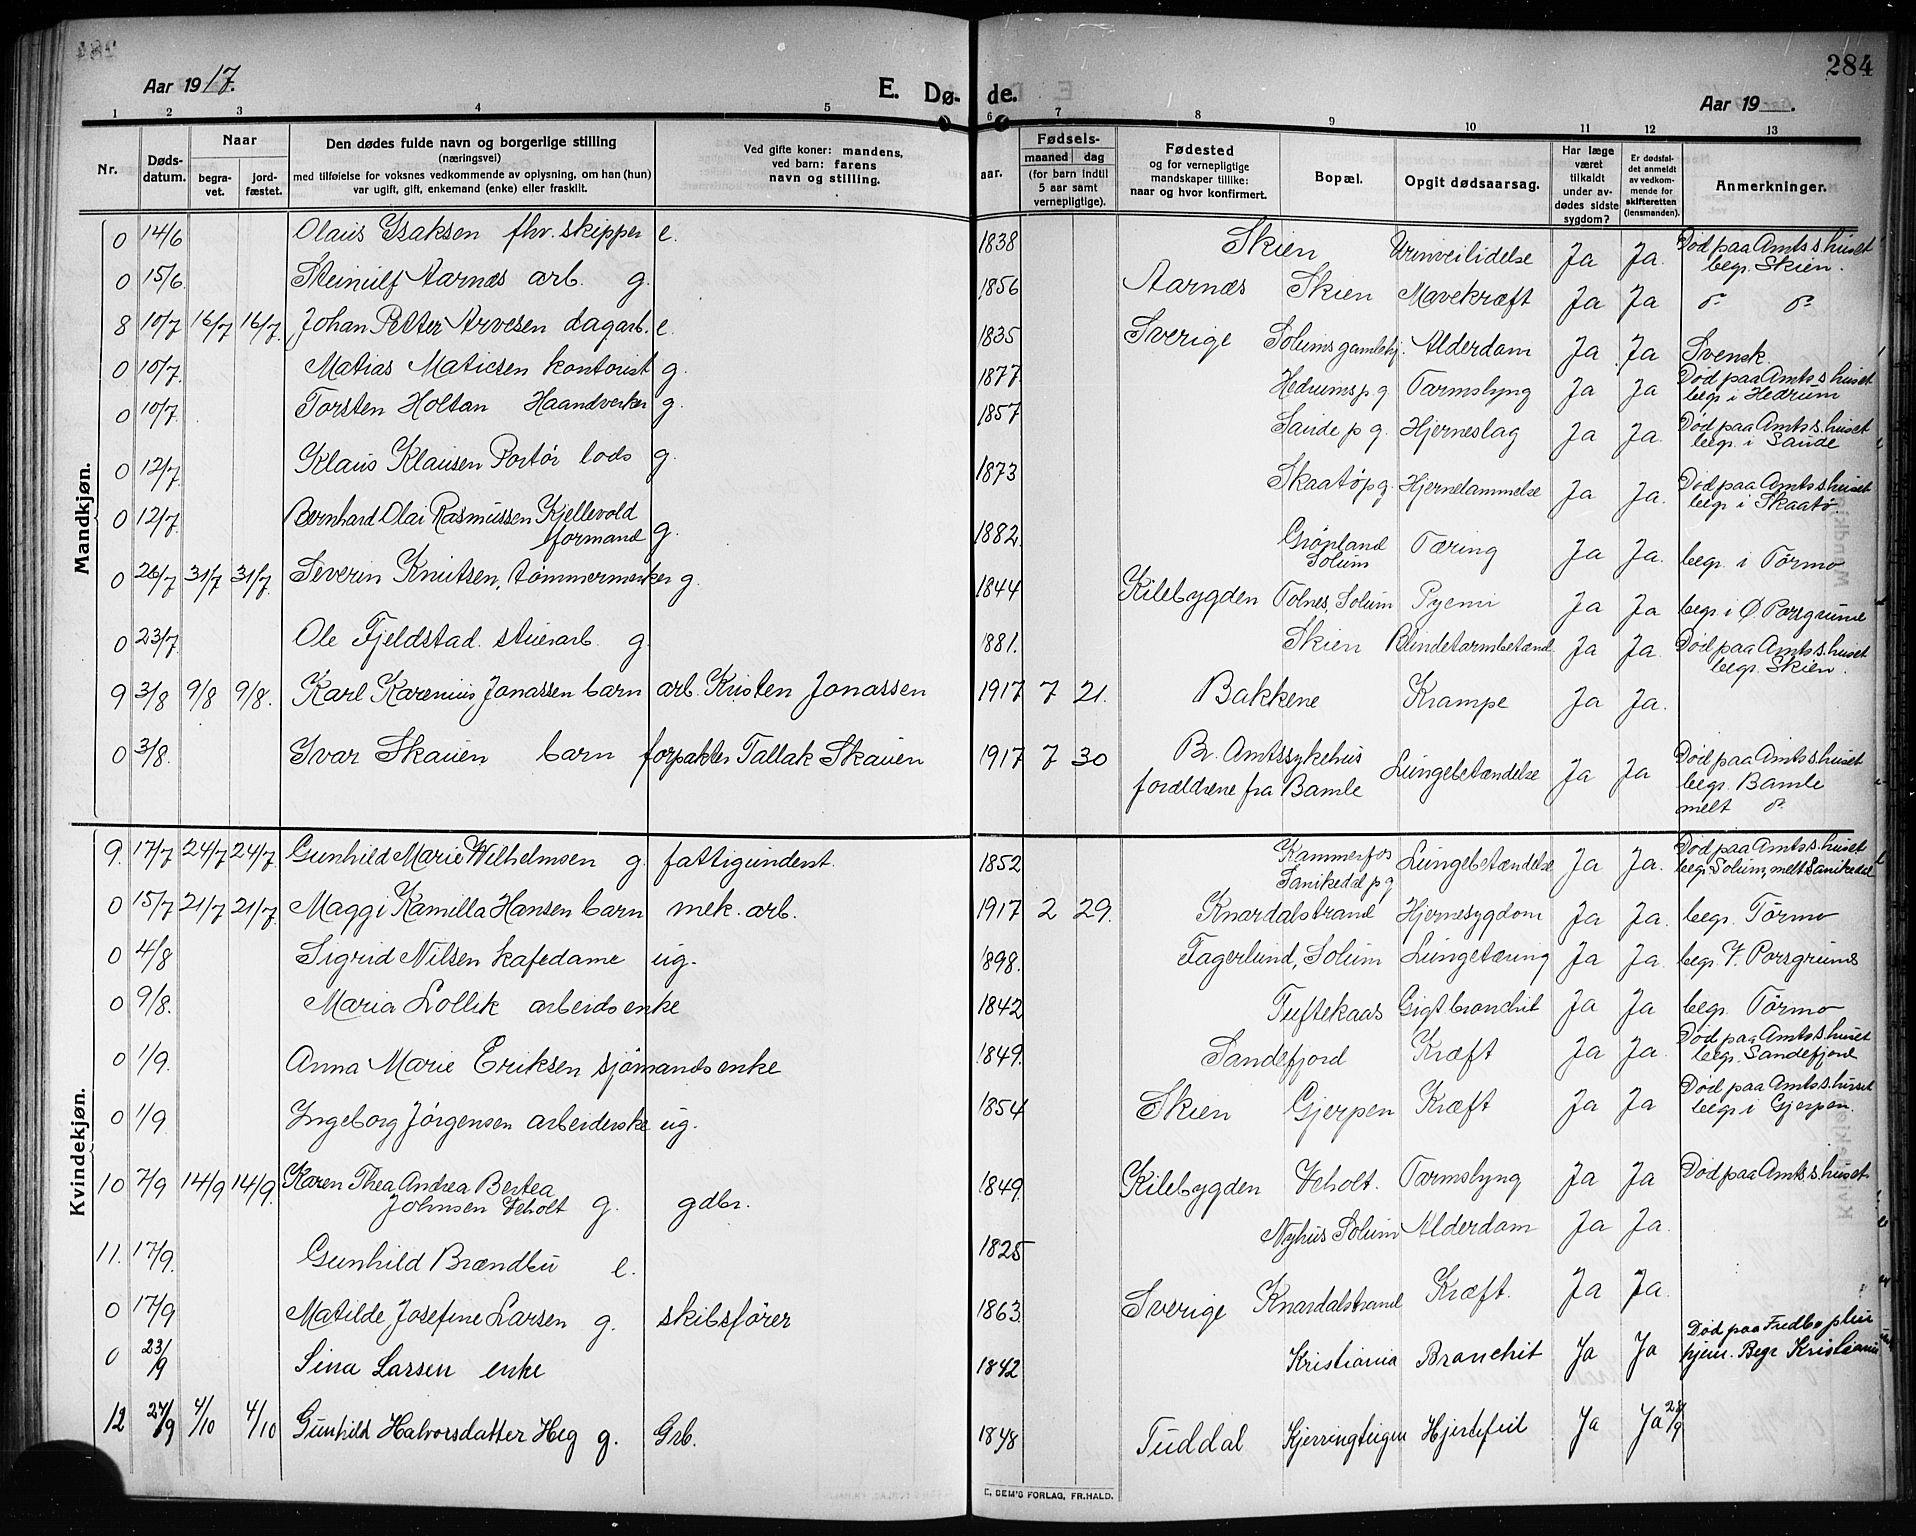 Aar 1917.
E. Dø-
de.
Aar 19 .
284
1 2 3 4 5 6 7 8 9 10 11 12 13
Nr.
Døds-
datum.
Naar
begra-
vet.
jord-
fæstet.
Den dødes fulde navn og borgerlige stilling
(næringsvei)
med tilføielse for voksnes vedkommende av oplysning, om han (hun)
var ugift, gift, enkemand (enke) eller fraskilt.
Ved gifte koner: mandens,
ved barn: farens
navn og stilling.
aar.
Fødsels-
maaned dag
(for barn indtil
5 aar samt
vernepligtige).
Fødested
og for vernepligtige
mandskaper tillike:
naar og hvor konfirmert.
Bopæl.
Opgit dødsaarsag.
Har læge
været
tilkaldt
under av-
dødes sidste
sygdom?
Er dødsfal-
det anmeldt
av vedkom-
mende for
skifteretten
(lensmanden).
Anmerkninger.
Mandkjøn.
0 14/6 Olaus Isaksen fhv. skipper e. 1838 Skien Urinveilidelse Ja Ja. Død paa Amtss.huset
begr. Skien.
0 15/6 Steinulf Aarnæs arb. g. 1856 Aarnæs Skien Mavekræft Ja Ja do do
8 10/7 16/7 16/7 Johan Petter Arvesen dagarb. e. 1835 Sverige Solums gamlehj. Alderdom Ja Ja Svensk.
0 10/7 Matias Matiesen kontorist g. 1877 Hedrums p g Tarmslyng Ja Ja Død paa Amts s huset
begr i Hedrum
0 10/7. Torsten Holtan Haandverker g. 1857 Saude p g. Hjerneslag Ja Ja. Død paa Amts s. huset
begr. i Saude
0 12/7. Klaus Klausen Portør lods g. 1873 Skaatø p g. Hjernelammelse Ja Ja. Død paa Amts s. huset
begr. i Skaatø.
0 12/7. Bernhard Olai Rasmussen Kjellevold
formand g. 1882. Grønland
Solum Tæring Ja Ja. begr. i Tørmo
0 26/7 31/7 31/7. Severin Knutsen, tømmermerker g. 1844 Kilebygden Tolnes, Solum Pyemi Ja Ja begr. i Ø. Porsgrund
0 23/7. Ole Fjeldstad. stuerarb. g. 1881. Skien Blindetarmbetænd. Ja Ja. Død paa Amts s. huset
begr. Skien.
9 3/8 9/8 9/8. Karl Karenius Jonassen barn arb. Kristen Jonassen 1917 7 21. Bakkene Krampe Ja Ja.
0 3/8. Ivar Skauen barn forpakter Tallak Skauen 1917 7 30 Br. Amtssykehus
forældrene fra Bamle Lungebetændelse Ja Ja Død paa Amts s huset
begr. Bamle
melt do
Kvindekjøn.
9. 17/7 24/7 24/7. Gunhild Marie Wilhelmsen g. fattigunderst. 1852 Kammerfos
Sanikedal p g Lungebetændelse Ja Ja. Død paa Amts s. huset
begr. Solum, melt Sanikedal
0 15/7 21/7 21/7 Maggi Kamilla Hansen barn mek. arb. 1917 2 29. Knardalstrand Hjernesygdom Ja Ja. begr. Tørmo
0 4/8 Sigrid Nilsen kafedame ug. 1898. Fagerlund, Solum Lungetæring Ja Ja. begr. V. Porsgrund
0 9/8. Maria Lollik arbeids enke 1842 Tuftekaas Gigt bronchit Ja Ja begr. Tørmo
0 1/9. Anna Marie Eriksen sjømands enke 1849. Sandefjord Kræft Ja Ja. Død paa Amts s. huset
begr. Sandefjord
0 1/9. Ingeborg Jørgensen arbeiderske ug. 1854 Skien Gjerpen Kræft Ja Ja Død paa Amts s. huset
begr i Gjerpen.
10 7/9 14/9 14/9. Karen Thea Andrea Bertea
Johnsen Veholt g. gdbr. 1849. Kilebygden Veholt. Tarmslyng Ja Ja Død paa Amts s. huset
11. 17/9. Gunhild Brændbu e. 1825 Nyhus Solum Alderdom Ja Ja.
0 17/9 Matilde Josefine Larsen g. skibsfører 1863. Sverige Knardalstrand Kræft. Ja Ja.
0 23/9 Sina Larsen enke 1842 Kristiania Bronchit Ja Ja Død paa Fredbo pleie
hjem. Begr Kristiania
12 27/9 4/10 4/10 Gunhild Halvorsdatter Heg g. Grb. 1848 Tuddal Kjerringteigen Hjertefeil Ja Ja 28/9
E. SEM'S FORLAG, FR.HALD.